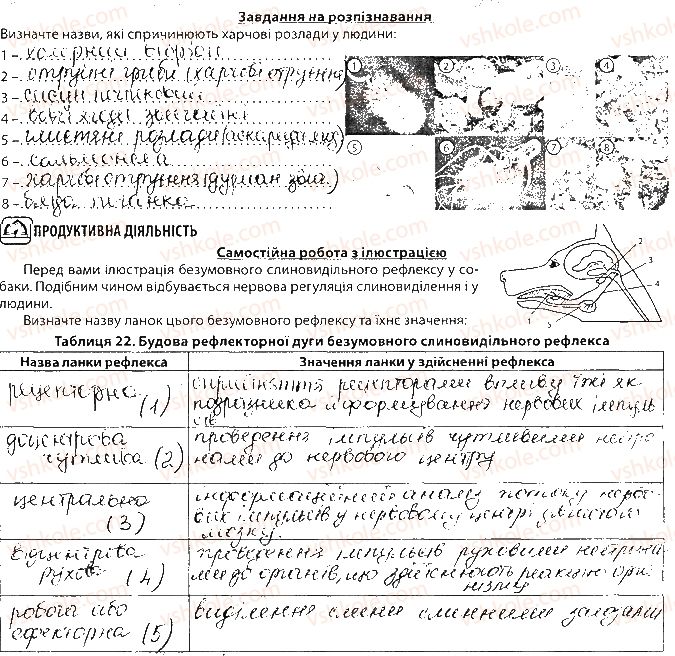 Завдання на розпізнавання
Визначте назви, які спричинюють харчові розлади у людини:
1 – холерний вібріон
2 – отруйні гриби (харчові отруєння)
3 –
4 –
5 – глистяні розлади (аскарида
6 – сальмонела
7 – харчові отруєння (дурман
8 – бліда поганка
1 2 3 4
5 6 7 8
ПРОДУКТИВНА ДІЯЛЬНІСТЬ
Самостійна робота з ілюстрацією
Перед вами ілюстрація безумовного слиновидільного рефлексу у со-
баки. Подібним чином відбувається нервова регуляція слиновиділення і у
людини.
Визначте назву ланок цього безумовного рефлексу та їхнє значення:
1 2 3 4 5
Таблиця 22. Будова рефлекторної дуги безумовного слиновидільного рефлекса
Назва ланки рефлекса Значення ланки у здійсненні рефлекса
рецепторна (1)
сприйняття рецепторами впливу їжі як
подразника й формування нервових імпуль
сів
доцентрова
чутлива (2)
проведення імпульсів чутливими нейро
нами до нервового центру
центральна
(3)
інформаційний аналіз потоку нерво
вих імпульсів у нервовому центрі
мозку.
відцентрова
рухова (4)
проведення імпульсів руховими нейрона
ми до органів, що здійснюють реакцію орга
нізму
робоча або
ефекторна (5)
виділення слини слинними залозами
vshkole.com